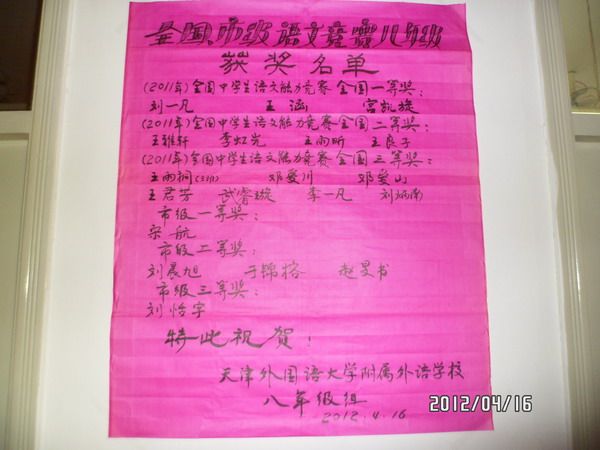 全国、市级语文竞赛八年级
获奖名单
(2011年)全国中学生语文能力竞赛全国一等奖:
刘一凡 王涵 宫凯旋
(2011年)全国中学生语文能力竞赛全国二等奖:
王雅轩 李虹光 王雨昕 王良子
(2011年)全国中学生语文能力竞赛全国三等奖:
王雨桐 邓爱川 邓爱山
王君芳 武睿璇 李一凡 刘炳南
市级一等奖:
宋航
市级二等奖:
刘晨旭 于锦榕 赵旻书
市级三等奖:
刘怡宇
特此祝贺!
天津外国语大学附属外语学校
八年级组
2012.4.16
2012/04/16